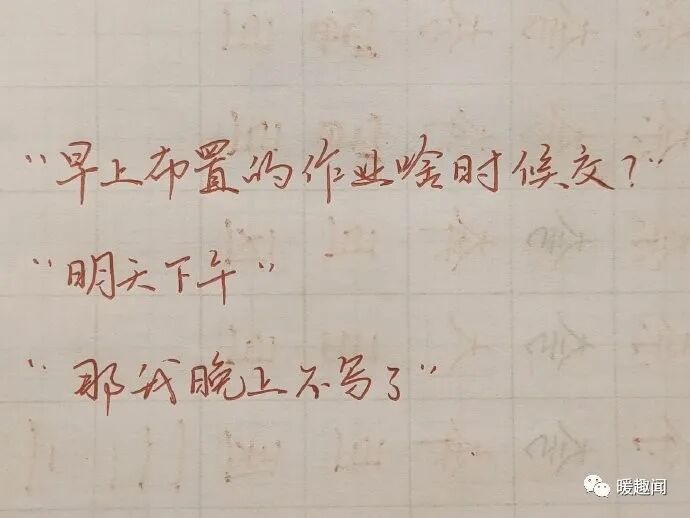 "早上布置的作业啥时候交?"
"明天下午"
"那我晚上不写了"
暖趣闻